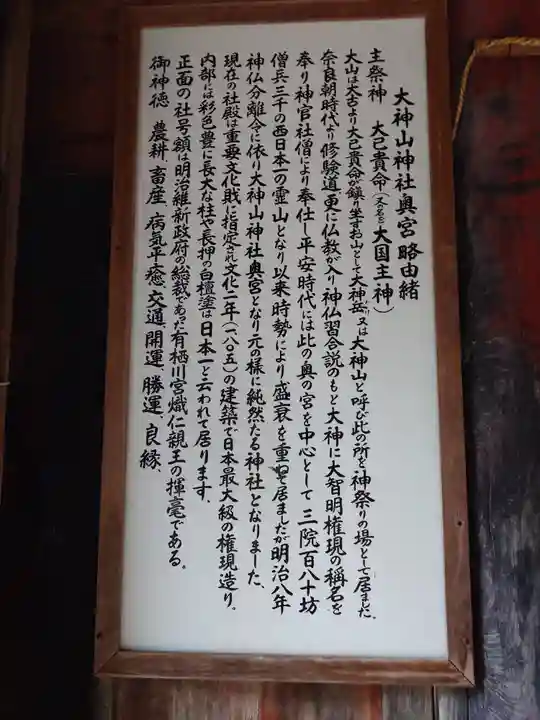 大神山神社奥宮略由緒
主祭神　大己貴命(又の名を大国主神)
大山は大古より大己貴命が鎮り坐すお山として大神岳、又は大神山と呼び此の所を神祭りの場として居ました、
奈良朝時代より修験道、更に仏教が入り神仏習合説のもと大神に大智明権現の稱名を
奉り神官社僧により奉仕し平安時代には此の奥の宮を中心として三院百八十坊
僧兵三千の西日本一の霊山となり以来時勢により盛衰を重ねて居ましたが明治八年
神仏分離令に依り大神山神社奥宮となり元の様に純然たる神社となりました、
現在の社殿は重要文化財に指定され文化二年(一八〇五)の建築で日本最大級の権現造り。
内部には彩色豊に長大な柱や長押の白檀塗は日本一と云われて居ります、
正面の社号額は明治維新政府の総裁であった有栖川宮熾仁親王の揮毫である。
御神徳　農耕、畜産、病気平癒、交通、開運、勝運、良縁、